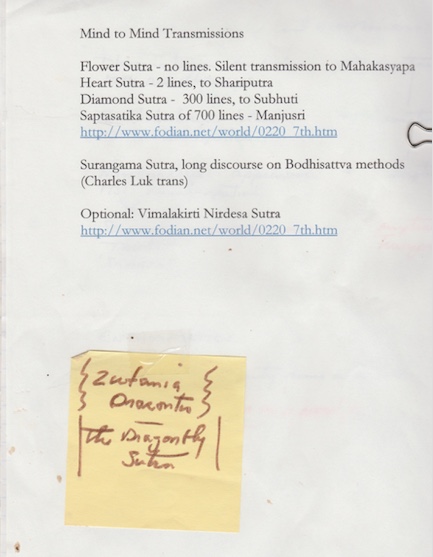 Mind to Mind Transmissions
Flower Sutra - no lines. Silent transmission to Mahakasyapa
Heart Sutra - 2 lines, to Shariputra
Diamond Sutra -  300 lines, to Subhuti
Saptasatika Sutra of 700 lines - Manjusri
http://www.fodian.net/world/0220_7th.htm
Surangama Sutra, long discourse on Bodhisattva methods
(Charles Luk trans)
Optional: Vimalakirti Nirdesa Sutra
http://www.fodian.net/world/0220_7th.htm
The Dragonfly
Sutra